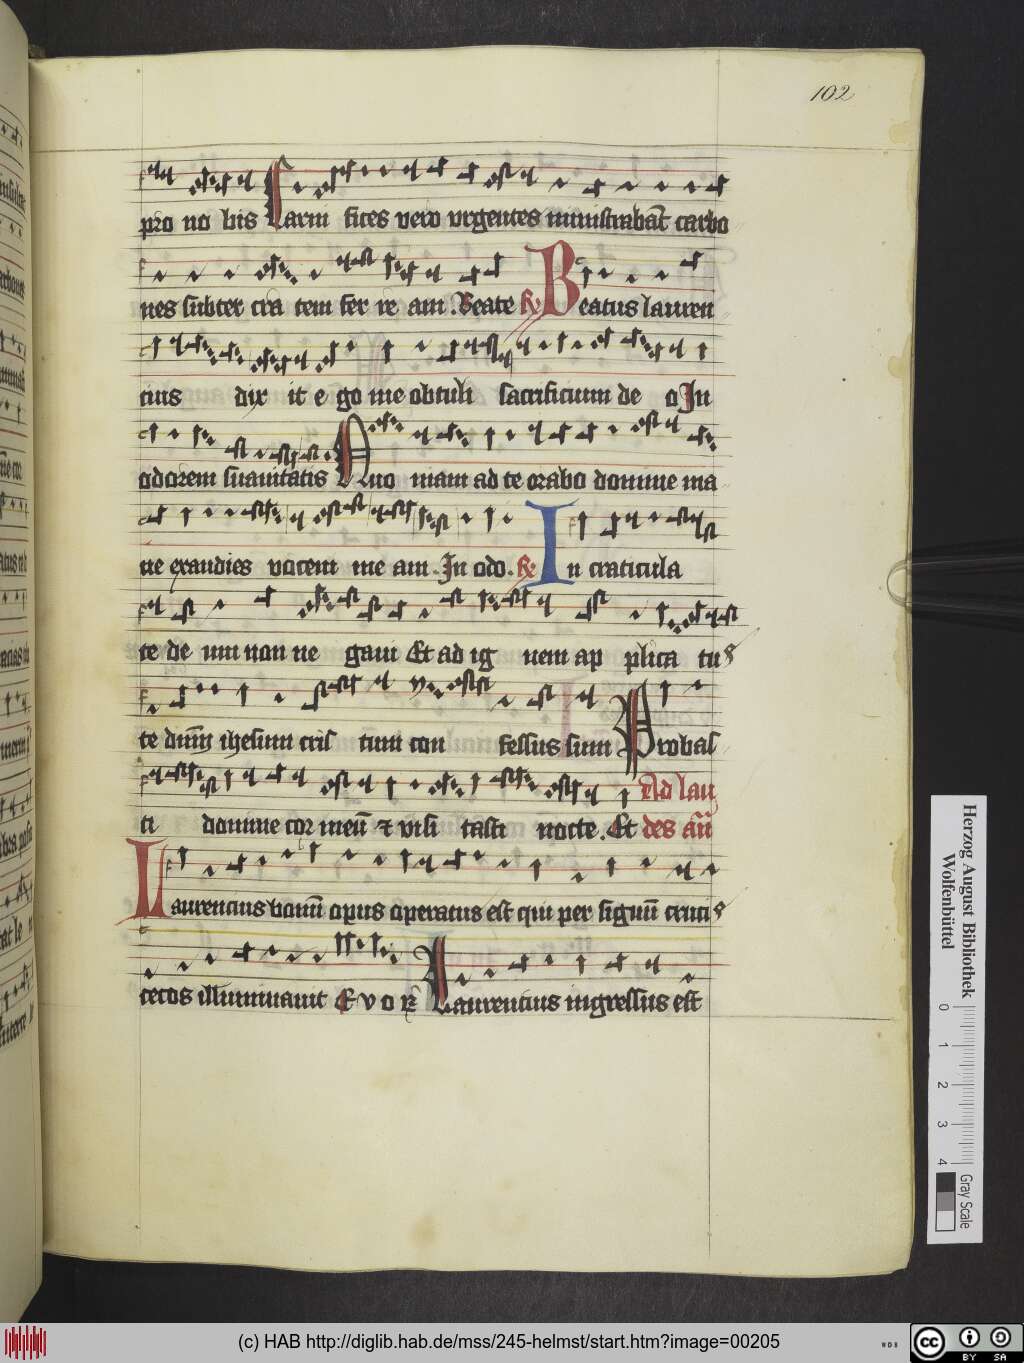 102
pro no bis Carni fices vero vrgentes ministrabāt carbo
nes subter cra tem fer re am. Beate ℟ Beatus lauren
cius dix it e go me obtuli sacrificium de o In
odorem suauitatis Quo niam ad te orabo domine ma
ne exaudies vocem me am. In odo. ℟ In craticula
te de um non ne gaui Et ad ig nem ap plica tus
te dm̄ ihesum cris tum con fessus sum Probas
ti domine cor meū ⁊ visi tasti nocte. Et Ad lau
des añ
Laurencius bonū opus operatus est qui per signū crucis
cecos illuminauit E v o v Laurencius ingressus est
Herzog August Bibliothek
Wolfenbüttel
0 1 2 3 4
Gray Scale
(c) HAB http://diglib.hab.de/mss/245-helmst/start.htm?image=00205
WDB
cc BY SA